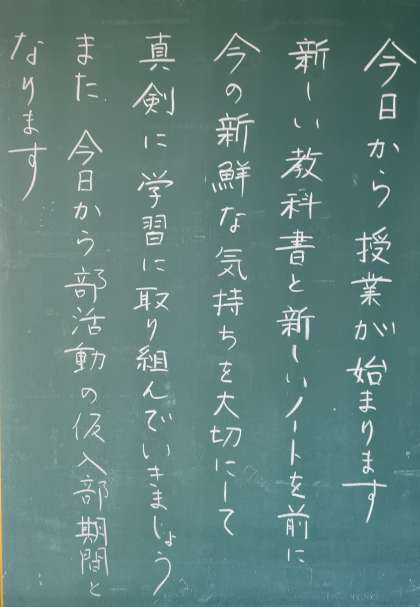 今日から授業が始まります
新しい教科書と新しいノートを前に
今の新鮮な気持ちを大切にして
真剣に学習に取り組んでいきましょう
また今日から部活動の仮入部期間と
なります